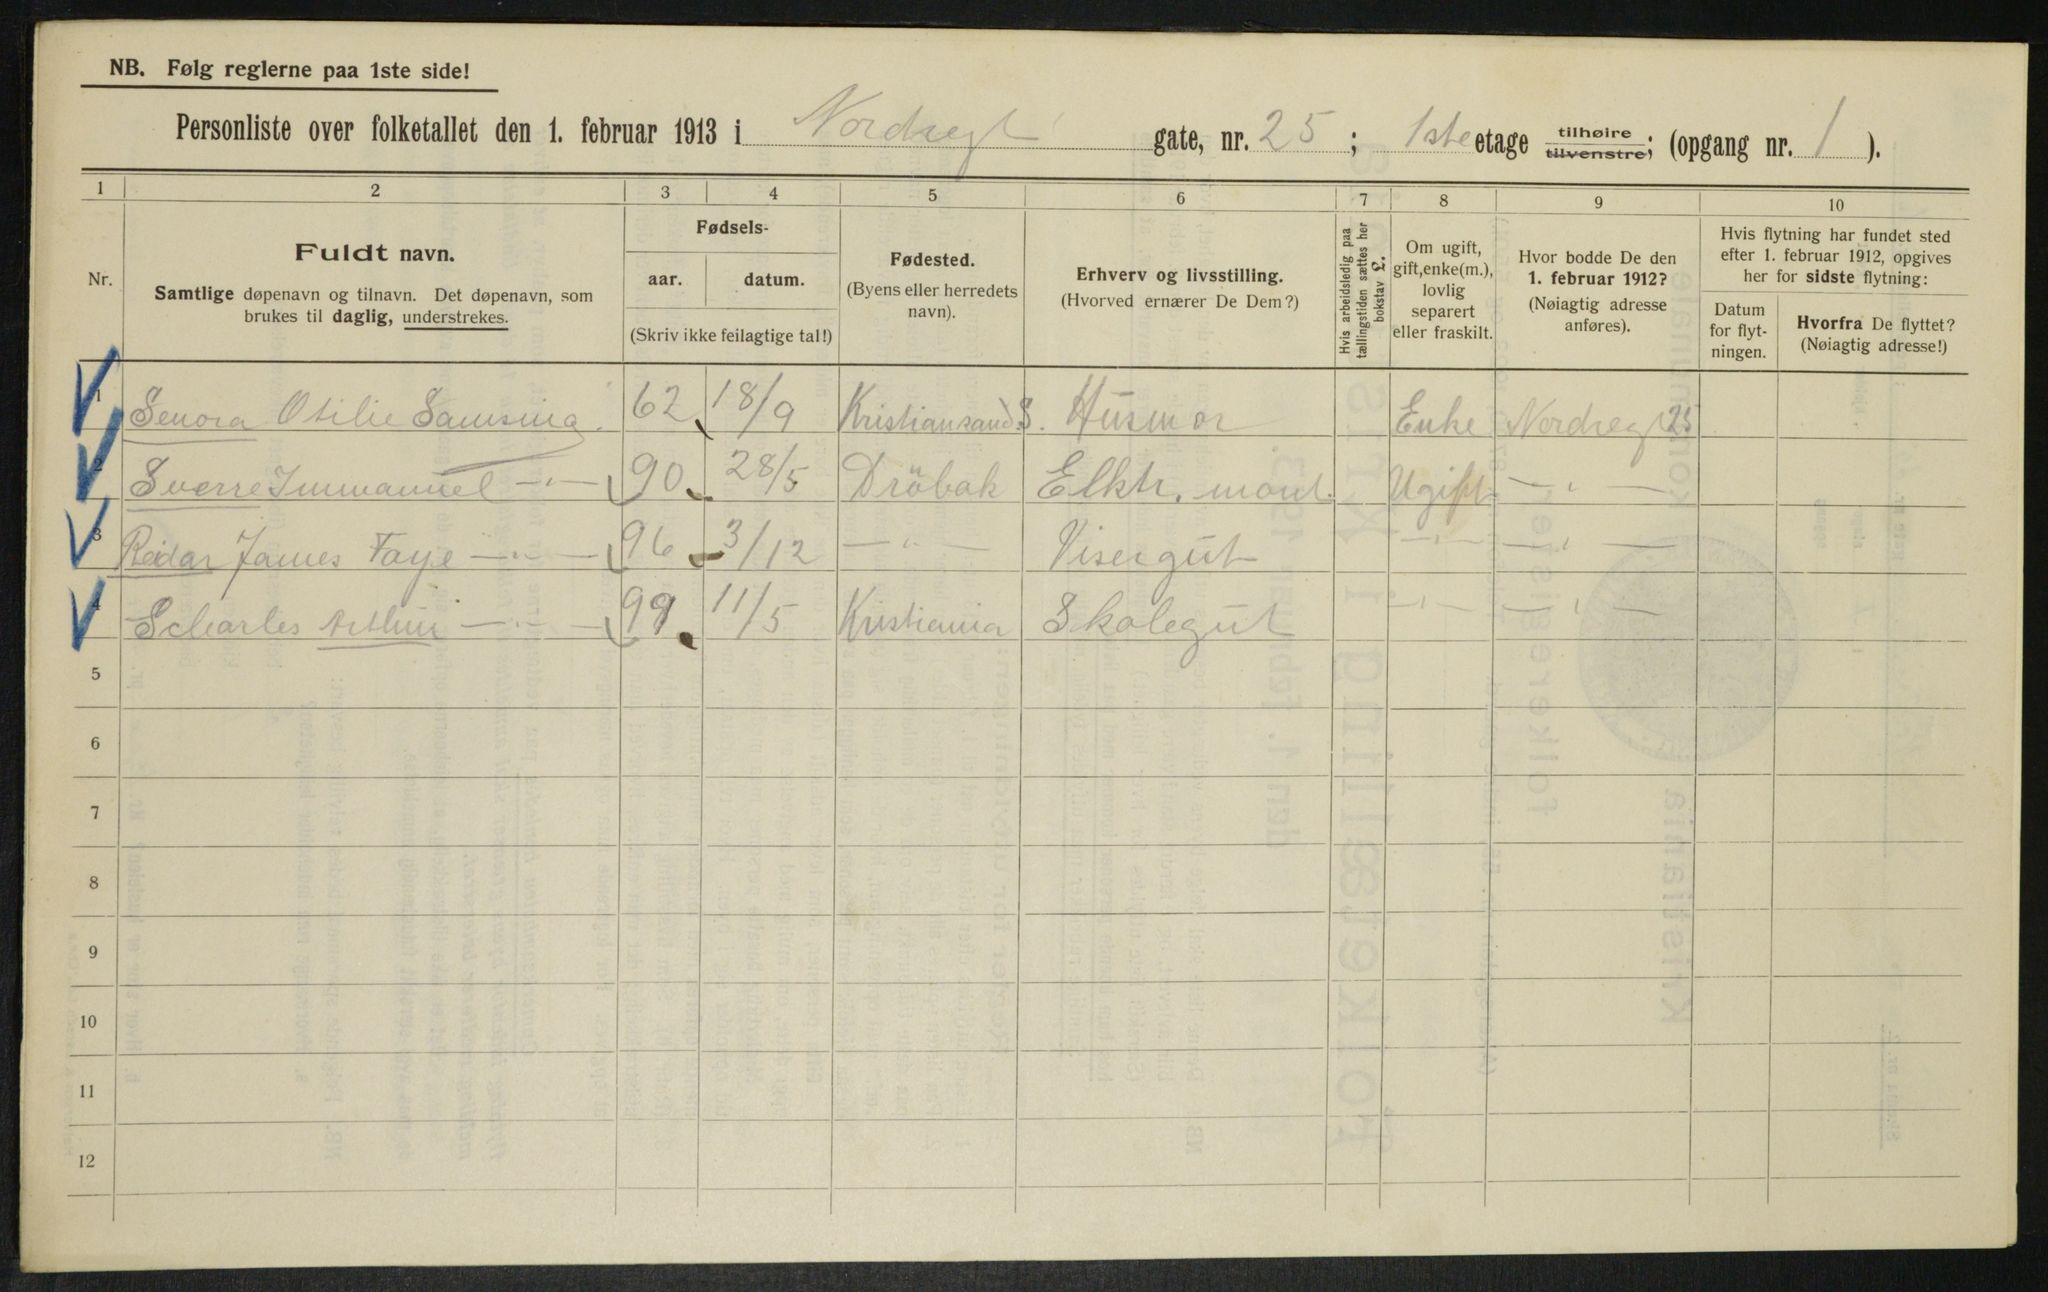 NB. Følg reglerne paa 1ste side!
Personliste over folketallet den 1. februar 1913 i Nordregt gate, nr. 25 ; 1ste etage tilhøire tilvenstre; (opgang nr. 1 ).
1 2 3 4 5 6 7 8 9 10
Nr.
Fuldt navn.
Samtlige døpenavn og tilnavn. Det døpenavn, som
brukes til daglig, understrekes.
Fødsels-
aar. datum.
(Skriv ikke feilagtige tal!)
Fødested.
(Byens eller herredets
navn).
Erhverv og livsstilling.
(Hvorved ernærer De Dem?)
Hvis arbeidsledig paa
tællingstiden sættes her
bokstav L.
Om ugift,
gift, enke(m.),
lovlig
separert
eller fraskilt.
Hvor bodde De den
1. februar 1912?
(Nøiagtig adresse
anføres).
Hvis flytning har fundet sted
efter 1. februar 1912, opgives
her for sidste flytning:
Datum
for flyt-
ningen.
Hvorfra De flyttet?
(Nøiagtig adresse!)
1 Senora Otilie Samsing. 62 18/9 Kristiansand S. Husmor Enke Nordregt 25
2 Sverre Immanuel —"— 90 28/5 Dröbak Elktr. mont. Ugift —"—
3 Reidar James Faye —"— 96 3/12 —"— Visergut —"— —"—
4 Scharles Arthur —"— 99 11/5 Kristiania Skolegut —"— —"—
5
6
7
8
9
10
11
12